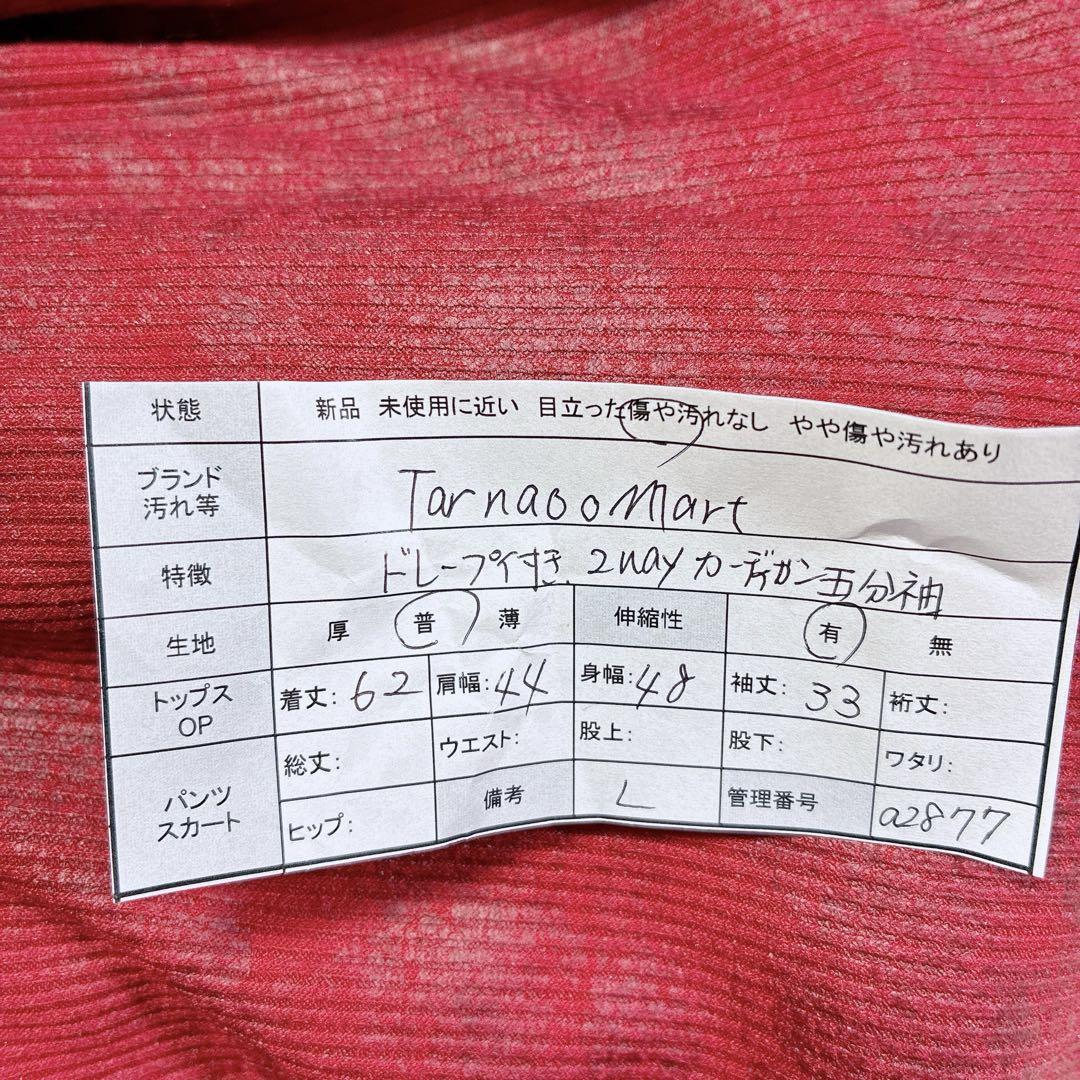 状態 新品 未使用に近い 目立った傷や汚れなし やや傷や汚れあり
ブランド
汚れ等
TarnaooMart
特徴 ドレープ付き 2way カーディガン 五分袖
生地 厚 普 薄 伸縮性 有 無
トップス
OP
着丈: 62 肩幅: 44 身幅: 48 袖丈: 33 裄丈:
パンツ
スカート
総丈: ウエスト: 股上: 股下: ワタリ:
ヒップ: 備考 L 管理番号 a2877